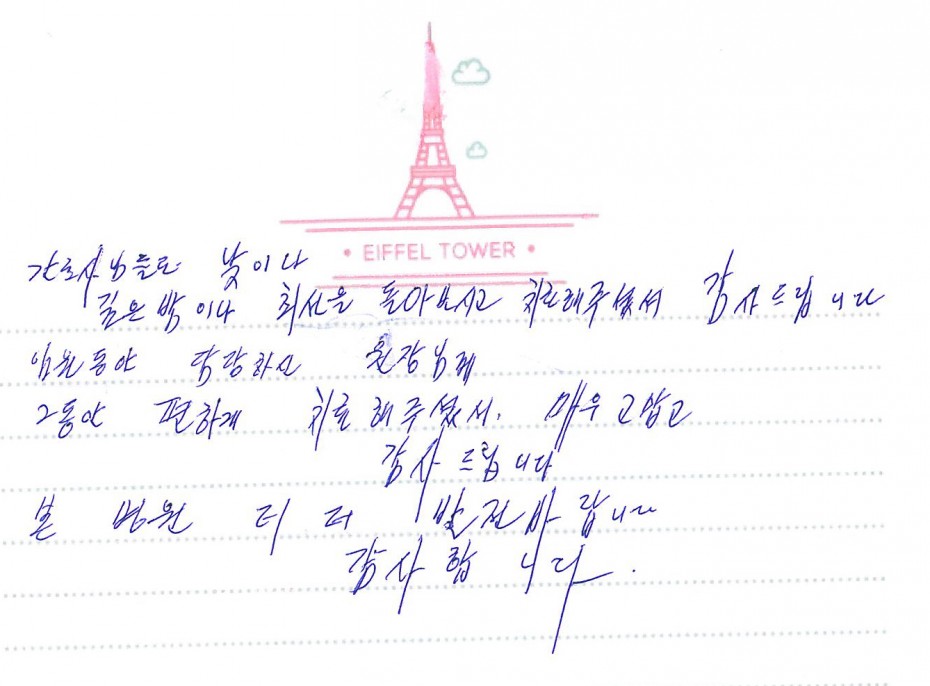 • EIFFEL TOWER •
간호사님들도 낮이나
깊은밤이나 최선을 돌아보시고 치료해주셨서 감사드립니다
입원동안 담당하신 원장님께
그동안 편하게 치료해주셨서. 매우 고맙고
감사드립니다
본 병원 더 더 발전바랍니다
감사합니다.